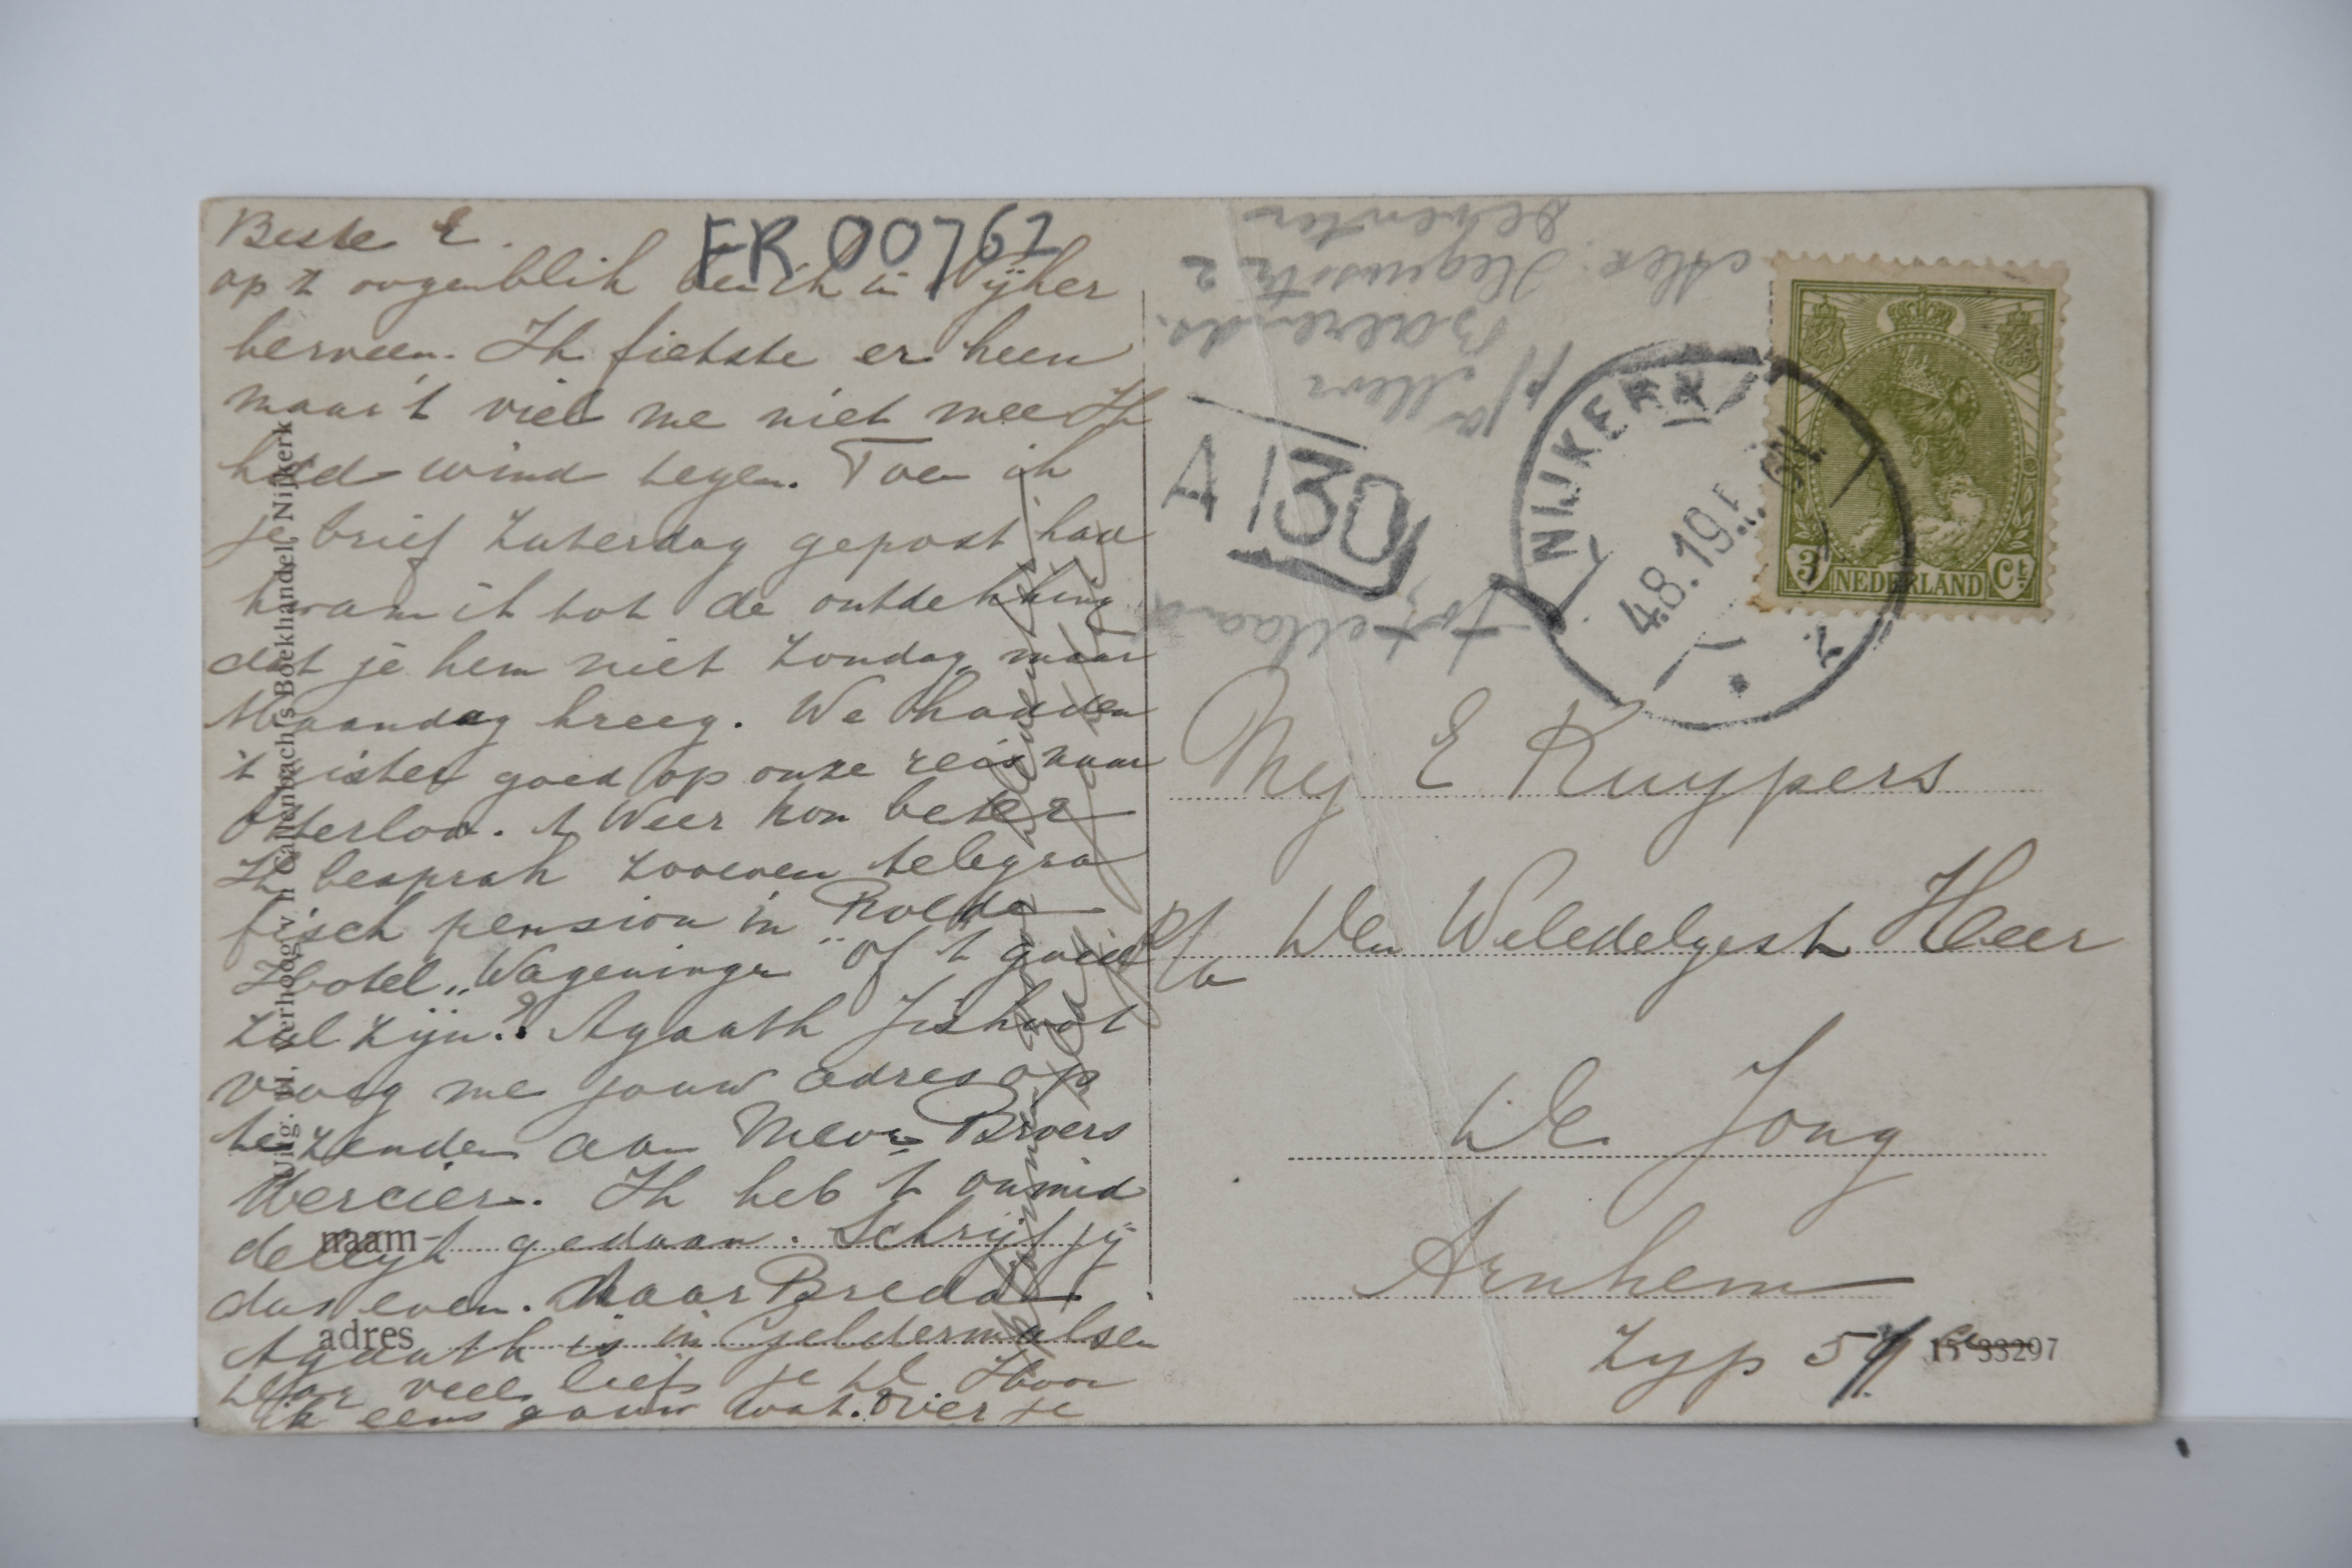 Beste E.
op 't oogenblik ben ik in Nijker
herveen. Ik fietste er heen
maar 't viel me niet mee Ik
had wind tegen. Toen ik
je brief Zaterdag gepost had
kwam ik tot de ontdekking
dat je hem niet Zondag maar
Maandag kreeg. We hadden
't gister goed op onze reis naar
Otterloo. 't Weer kon beter
Ik besprak zooeven telegra
fisch pension in Rolde
Hotel „Wageningen" of 't goed
zal zijn? Agaath
vroeg me jouw adres op
te zenden aan Mevr Broers
Mercier. Ik heb 't onmid
dellijk gedaan. Schrijf jij
dus even. Naar Breda
Agaath is in Geldermalsen
veel liefs je Hoor
ik eens gauw wat over je
FR 00762
Uitg. v.h. Callenbach's Boekhandel, Nijkerk
naam
adres
Deventer
2
Mevr
Baerends
A 130
NIJKERK
4.8.19
3 NEDERLAND Ct
Mej E Kuypers
p/a Den Weledelgestr Heer
De Jong
Arnhem
Zyp
15 33297